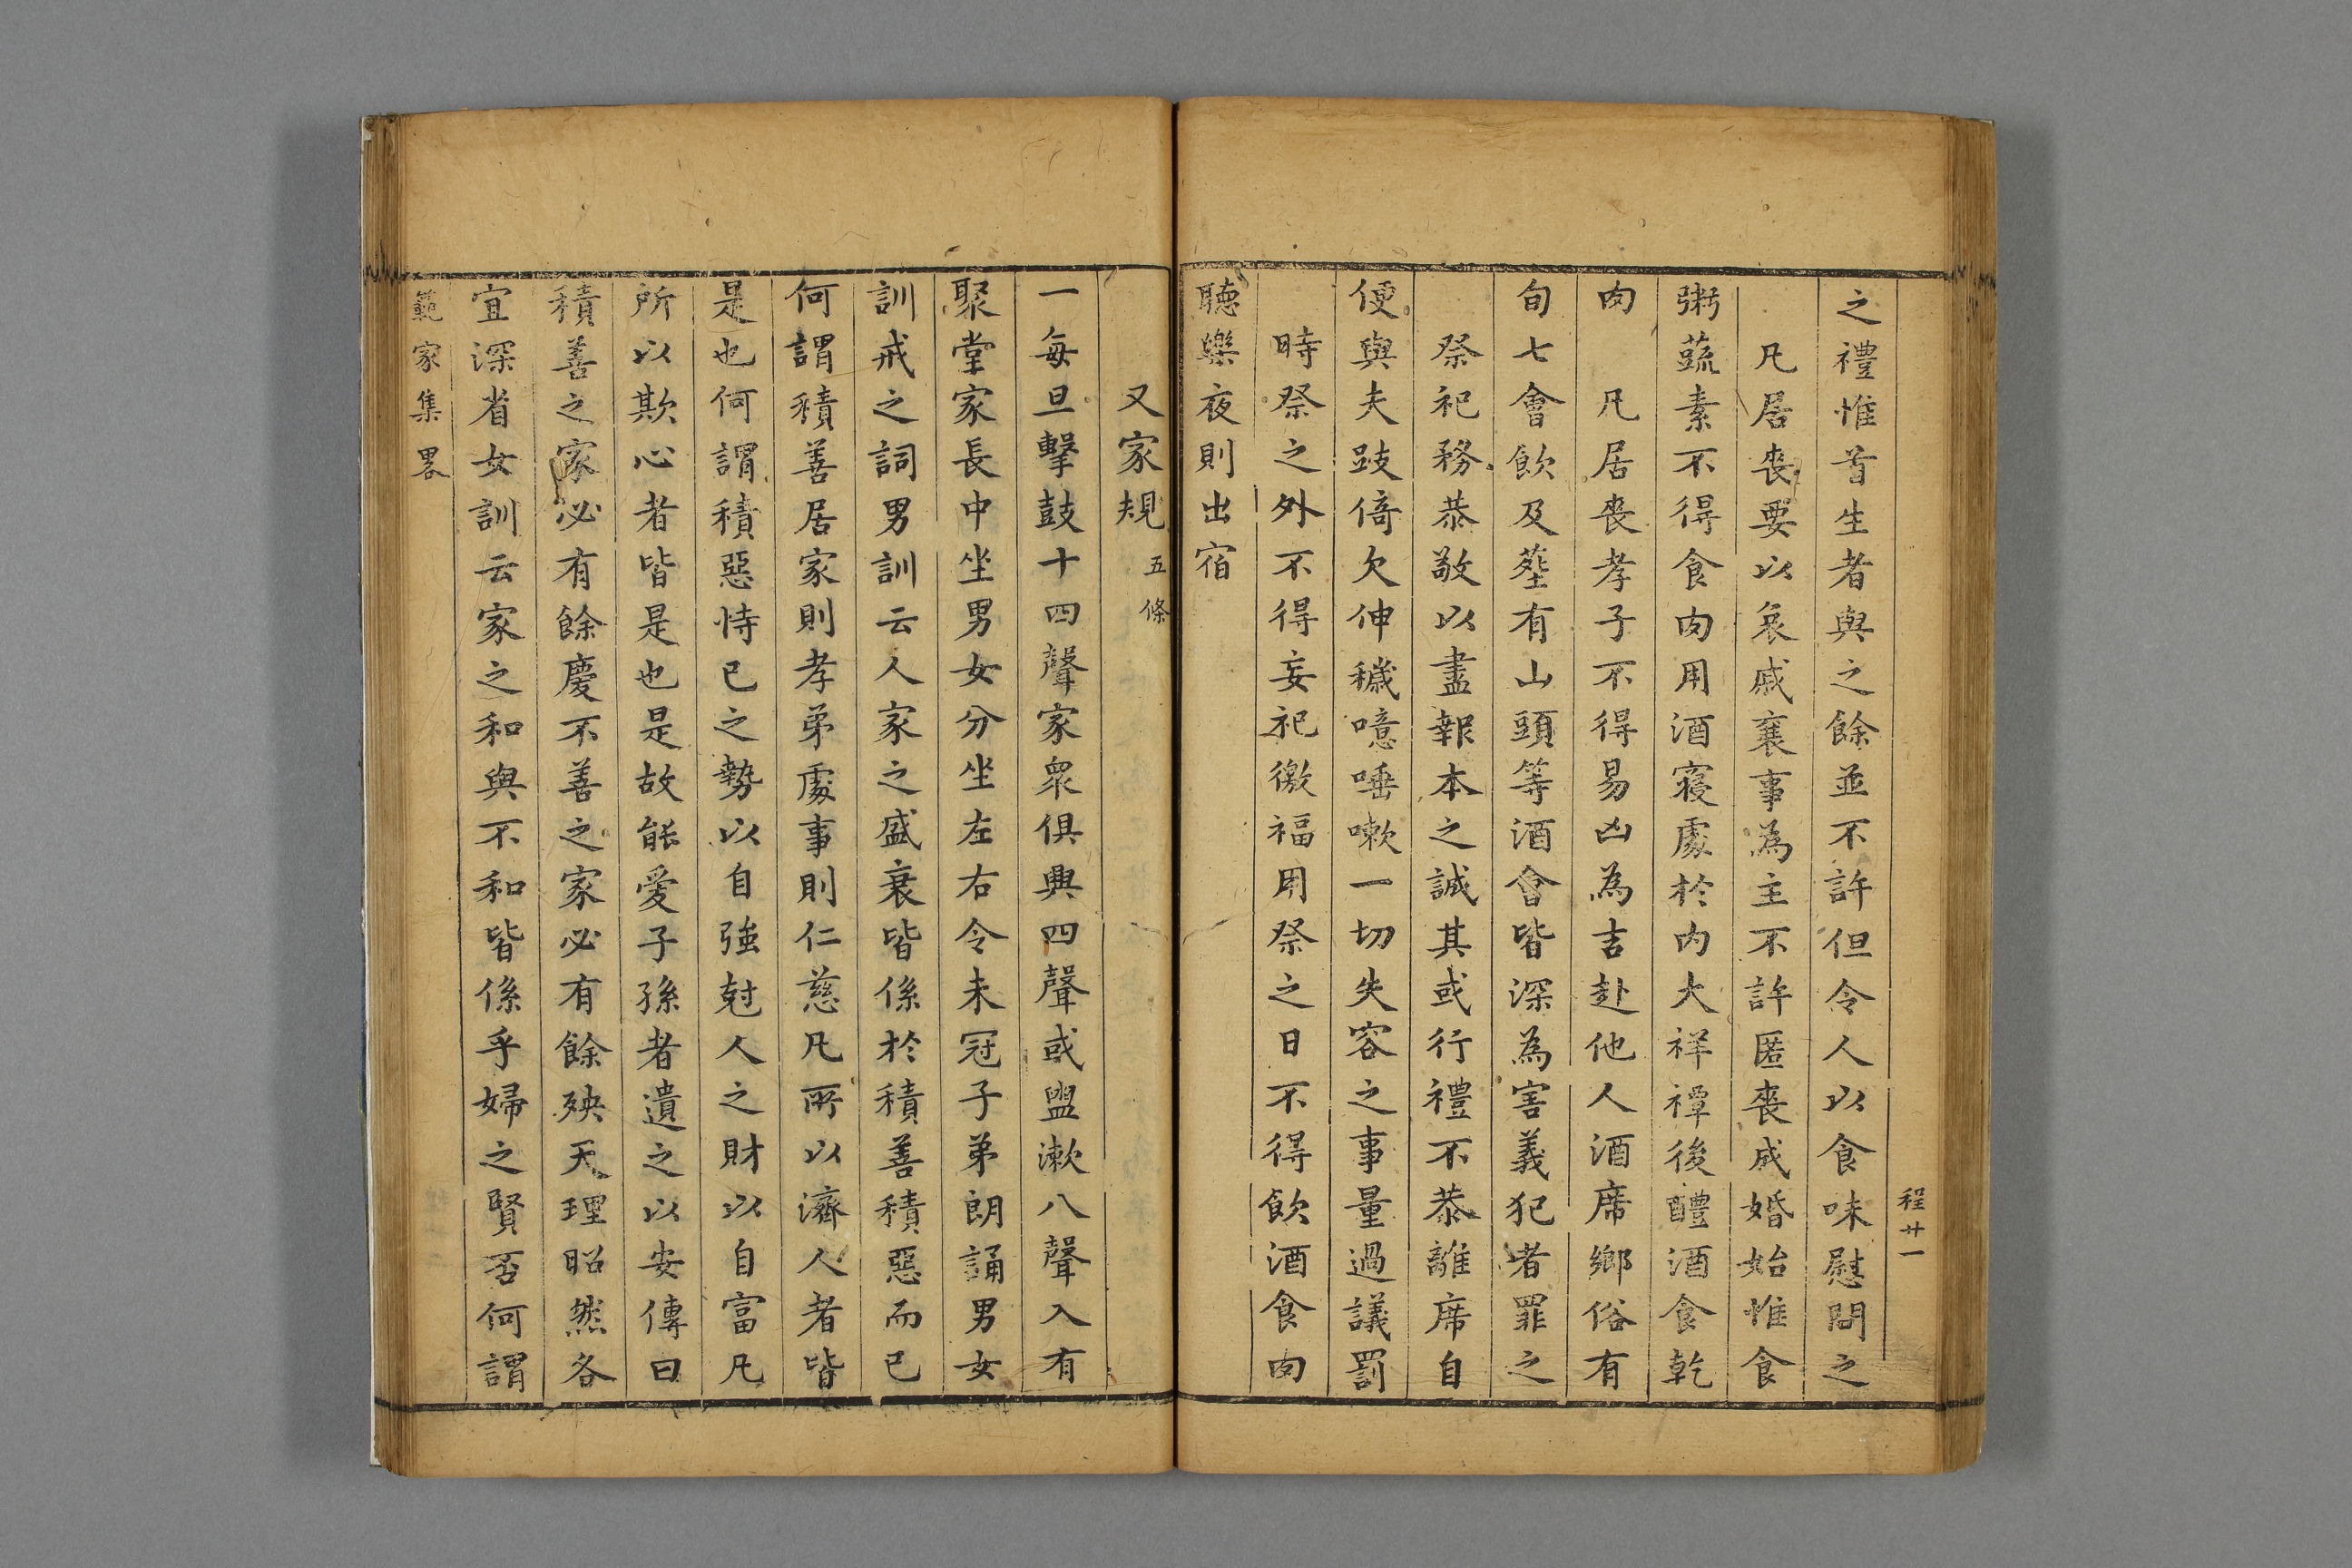 程廿一
之禮惟首生者與之餘並不許但令人以食味慰問之
凡居喪要以哀戚襄事為主不許匿喪成婚始惟食
粥蔬素不得食肉用酒寢處於內大祥禫後醴酒食乾
肉　凡居喪孝子不得易凶為吉赴他人酒席鄉俗有
旬七會飲及塟有山頭等酒會皆深為害義犯者罪之
祭祀務恭敬以盡報本之誠其或行禮不恭離席自
便與夫跂倚欠伸穢噫唾嗽一切失容之事量過議罰
時祭之外不得妄祀徼福用祭之日不得飲酒食肉
聽樂夜則出宿
又家規五條
一每旦擊鼓十四聲家衆俱興四聲或盥漱八聲入有
聚堂家長中坐男女分坐左右令未冠子弟朗誦男女
訓戒之詞男訓云人家之盛衰皆係於積善積惡而已
何謂積善居家則孝弟處事則仁慈凡所以濟人者皆
是也何謂積惡恃己之勢以自強尅人之財以自富凡
所以欺心者皆是也是故能愛子孫者遺之以安傳曰
積善之家必有餘慶不善之家必有餘殃天理昭然各
宜深省女訓云家之和與不和皆係乎婦之賢否何謂
範家集畧